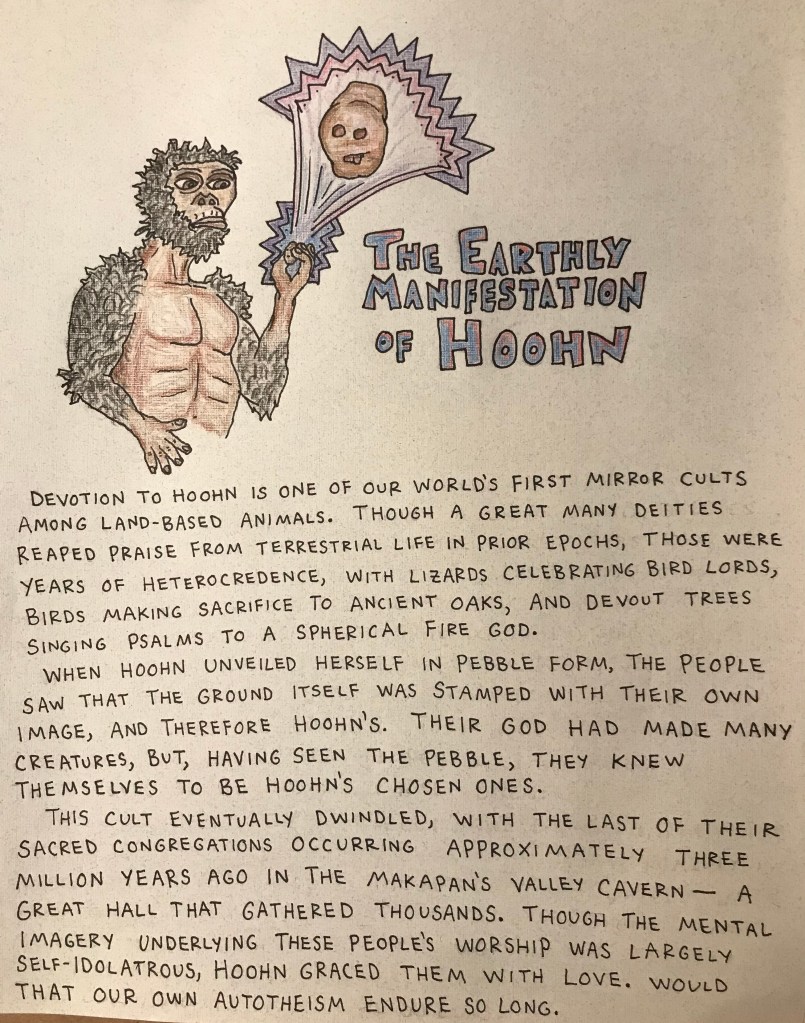 THE EARTHLY
MANIFESTATION
OF HOOHN
DEVOTION TO HOOHN IS ONE OF OUR WORLD'S FIRST MIRROR CULTS
AMONG LAND-BASED ANIMALS. THOUGH A GREAT MANY DEITIES
REAPED PRAISE FROM TERRESTRIAL LIFE IN PRIOR EPOCHS, THOSE WERE
YEARS OF HETEROCREDENCE, WITH LIZARDS CELEBRATING BIRD LORDS,
BIRDS MAKING SACRIFICE TO ANCIENT OAKS, AND DEVOUT TREES
SINGING PSALMS TO A SPHERICAL FIRE GOD.
WHEN HOOHN UNVEILED HERSELF IN PEBBLE FORM, THE PEOPLE
SAW THAT THE GROUND ITSELF WAS STAMPED WITH THEIR OWN
IMAGE, AND THEREFORE HOOHN'S. THEIR GOD HAD MADE MANY
CREATURES, BUT, HAVING SEEN THE PEBBLE, THEY KNEW
THEMSELVES TO BE HOOHN'S CHOSEN ONES.
THIS CULT EVENTUALLY DWINDLED, WITH THE LAST OF THEIR
SACRED CONGREGATIONS OCCURRING APPROXIMATELY THREE
MILLION YEARS AGO IN THE MAKAPAN'S VALLEY CAVERN — A
GREAT HALL THAT GATHERED THOUSANDS. THOUGH THE MENTAL
IMAGERY UNDERLYING THESE PEOPLE'S WORSHIP WAS LARGELY
SELF-IDOLATROUS, HOOHN GRACED THEM WITH LOVE. WOULD
THAT OUR OWN AUTOTHEISM ENDURE SO LONG.